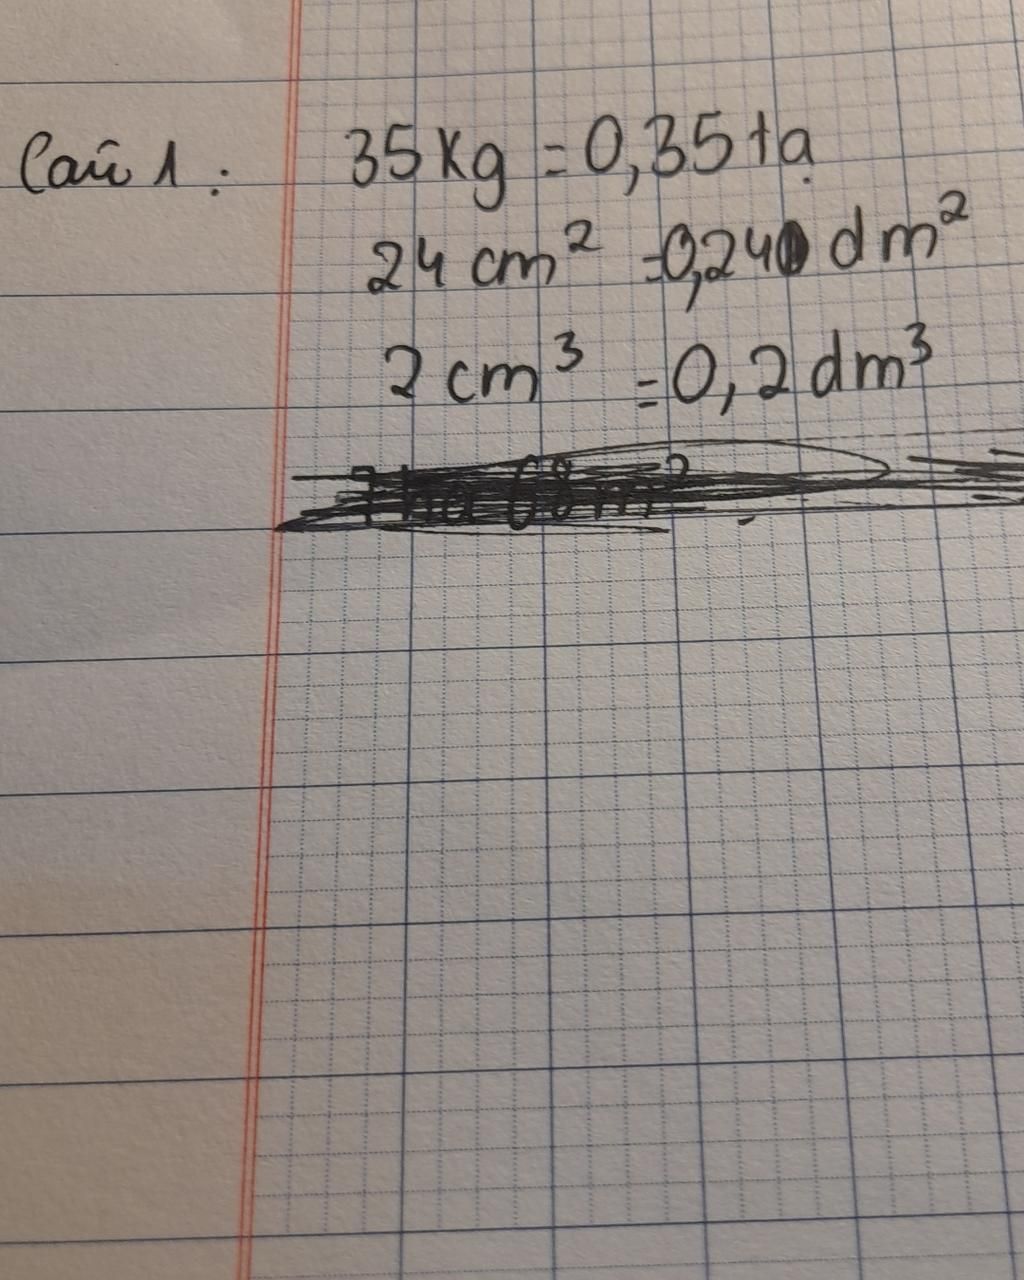 Câu 1: 35 kg = 0,35 tạ
24 cm² = 0,240 dm²
2 cm³ = 0,2 dm³